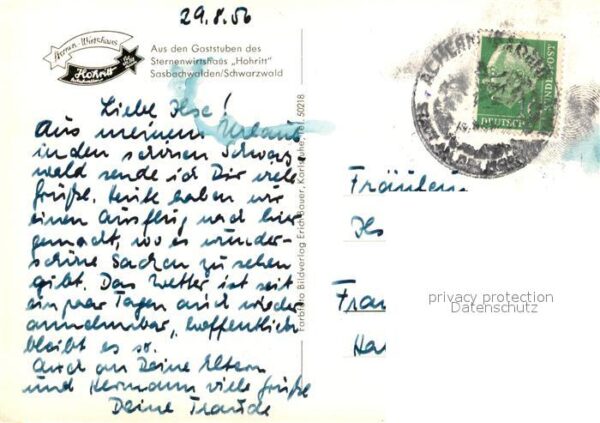 29.8.56
Sternen-Wirtshaus
Hohritt
Aus den Gaststuben des
Sternenwirtshaus „Hohritt"
Sasbachwalden/Schwarzwald
Liebe Ilse!
Aus meinem Urlaub
in den schönen Schwarz-
wald sende ich Dir viele
Grüße. Heute haben wir
einen Ausflug nach hier
gemacht, wo es wunder-
schöne Sachen zu sehen
gibt. Das Wetter ist seit
ein paar Tagen auch wieder
annehmbar, hoffentlich
bleibt es so.
Auch an Deine Eltern
und Hermann viele Grüße
Deine Traude
Farbfoto Bildverlag Erich Bauer, Karlsruhe, Tel. 50218
ACHERN
DEUTSCHE BUNDESPOST
Fräulein
Ils
Fran
Ha
privacy protection
Datenschutz